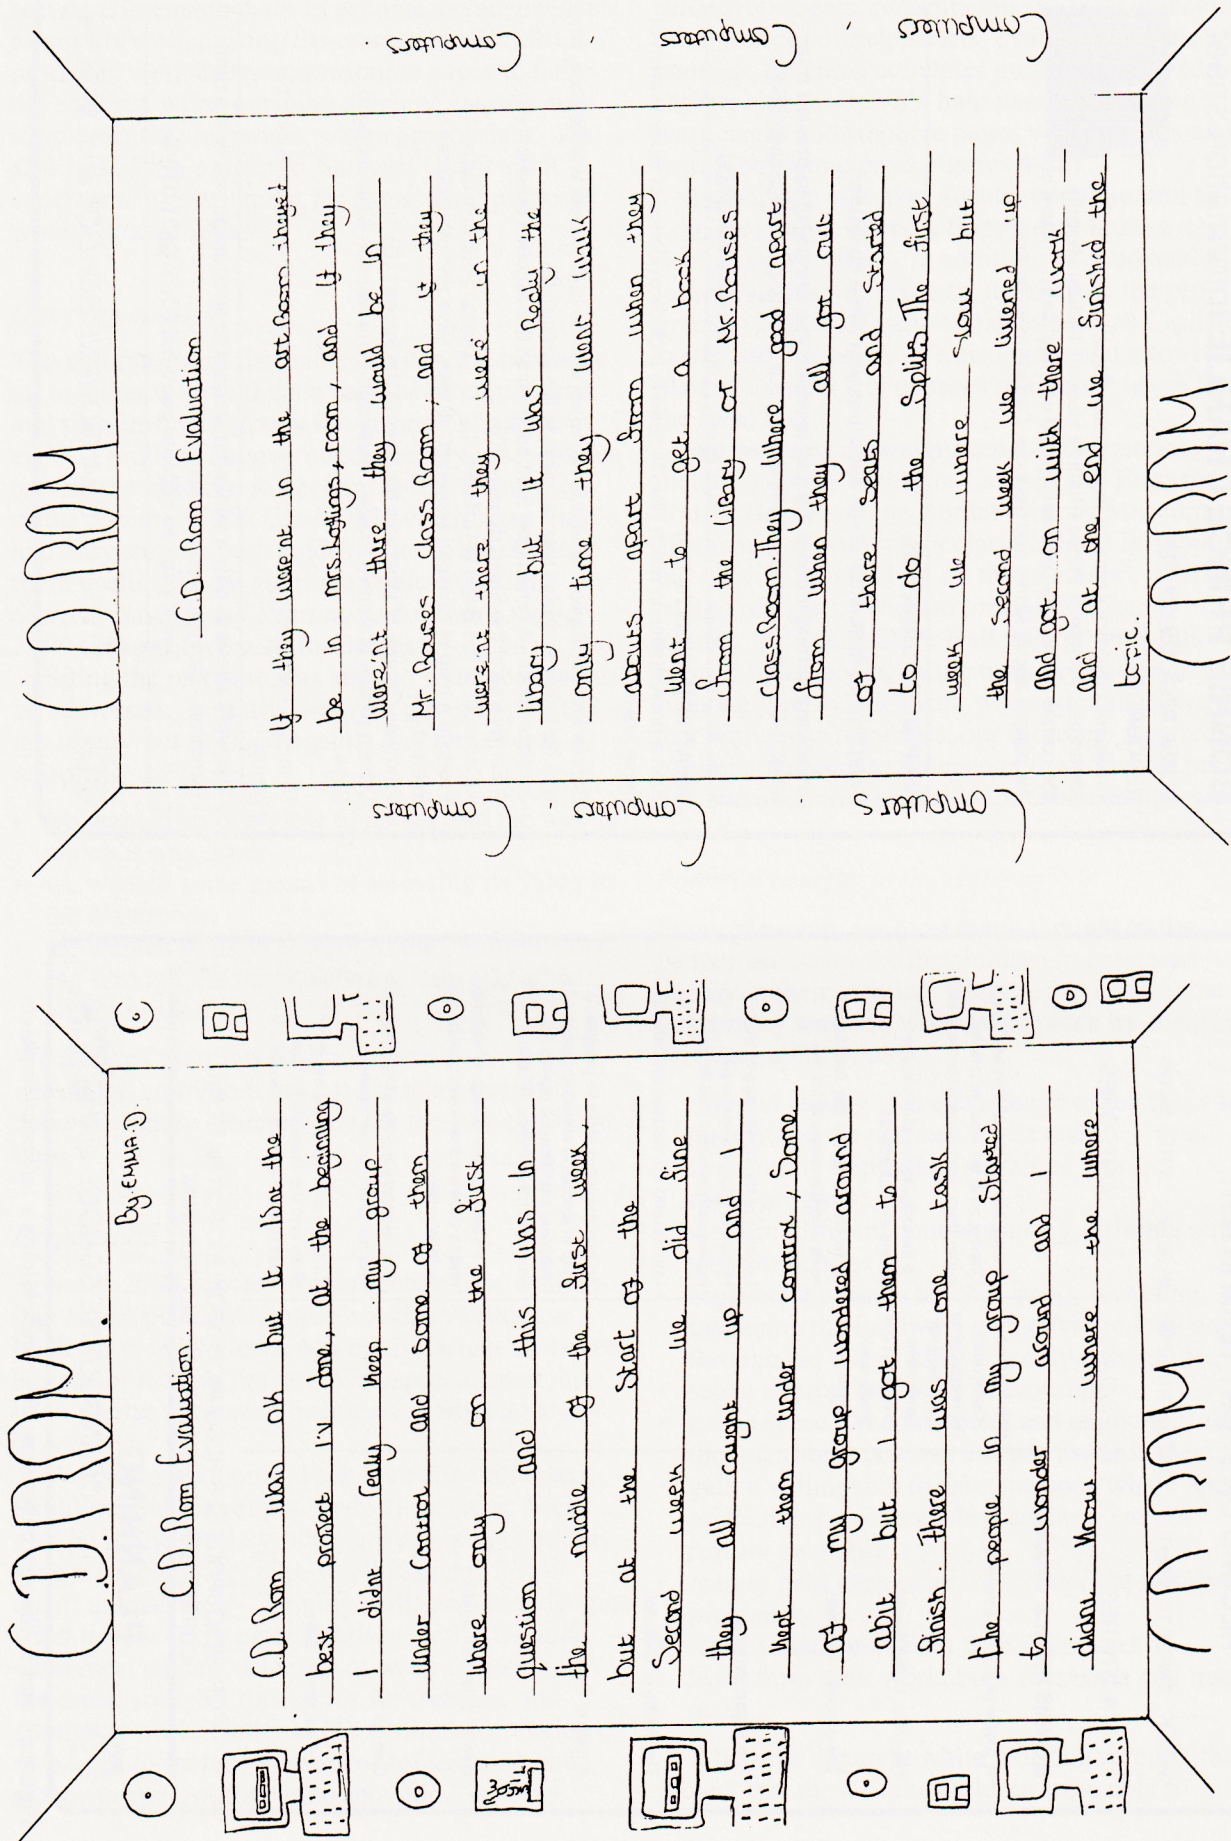 C.D.ROM.
By. EMMA.D.
C.D. Rom Evaluation.
C.D. Rom was ok but it isnt the
best project I'v done, at the beginning
I didnt realy keep my group
under Control and Some of them
where only on the first
question and this was in
the middle of the first week,
but at the Start of the
Second week we did fine
they all caught up and I
kept them under control, Some
of my group wondered around
abit but I got them to
finish. There was one task
the people in my group Started
to wonder around and I
didnt know where the where
CD ROM
CD ROM.
Computers. Computers. Computers
C.D. Rom Evaluation
If they were'nt in the art Room theyed
be in mrs. room, and if they
were'nt there they would be in
Mr. Rouses class Room, and if they
were'nt there they were in the
libary but it was Realy the
only time they went walk
abouts apart from when they
went to get a book
from the libary or Mr. Rouses
class Room. They where good apart
from when they all got out
of there seats and Started
to do the Splits. The first
week we where slow but
the Second week we livened up
and got on with there work
and at the end we finished the
topic.
Computers. Computers. Computers.
CD ROM